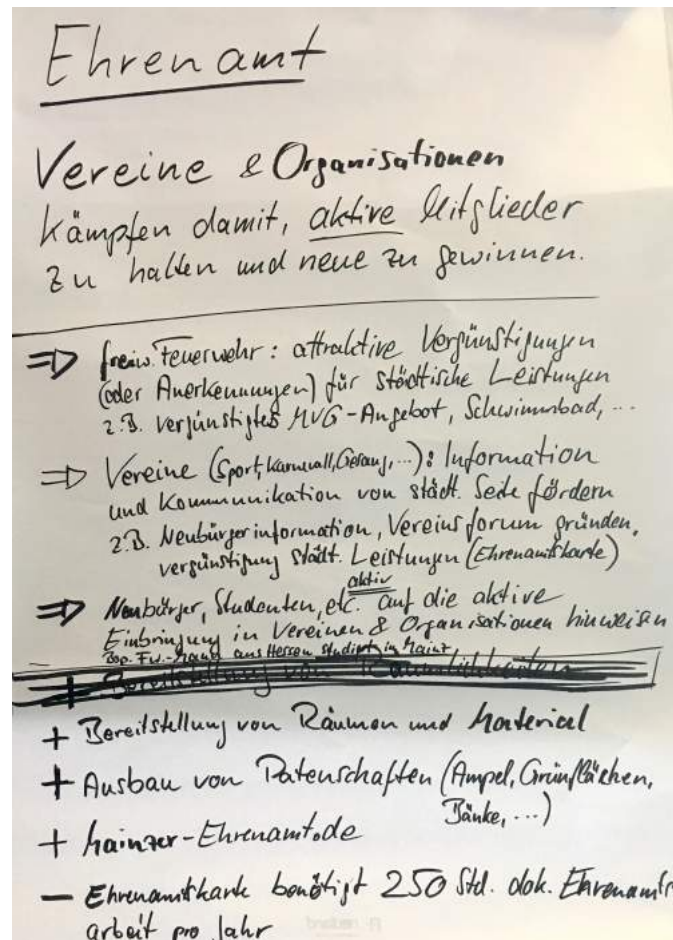 Ehrenamt
Vereine & Organisationen
kämpfen damit, aktive Mitglieder
zu halten und neue zu gewinnen.
⇒ freiw. Feuerwehr: attraktive Vergünstigungen
(oder Anerkennungen) für städtische Leistungen
z.B. vergünstigtes MVG-Angebot, Schwimmbad, ...
⇒ Vereine (Sport, Karneval, Gesang, ...): Information
und Kommunikation von städt. Seite fördern
z.B. Neubürgerinformation, Vereinsforum gründen,
vergünstigung städt. Leistungen (Ehrenamtskarte)
aktiv
⇒ Neubürger, Studenten, etc. auf die aktive
Einbringung in Vereinen & Organisationen hinweisen
Bsp. Fw.-Mann aus Hessen studiert in Mainz
+ Bereitstellung von Räumlichkeiten
+ Bereitstellung von Räumen und Material
+ Ausbau von Patenschaften (Ampel, Grünflächen,
Bänke, ...)
+ Mainzer-Ehrenamt.de
− Ehrenamtskarte benötigt 250 Std. dok. Ehrenamts
arbeit pro Jahr